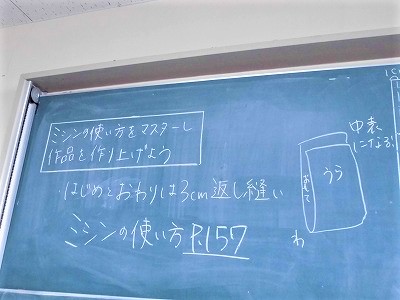 ミシンの使い方をマスターし
作品を作り上げよう
・はじめとおわりは3cm返し縫い
ミシンの使い方 P.157
中表
になる
うら
おもて
わ